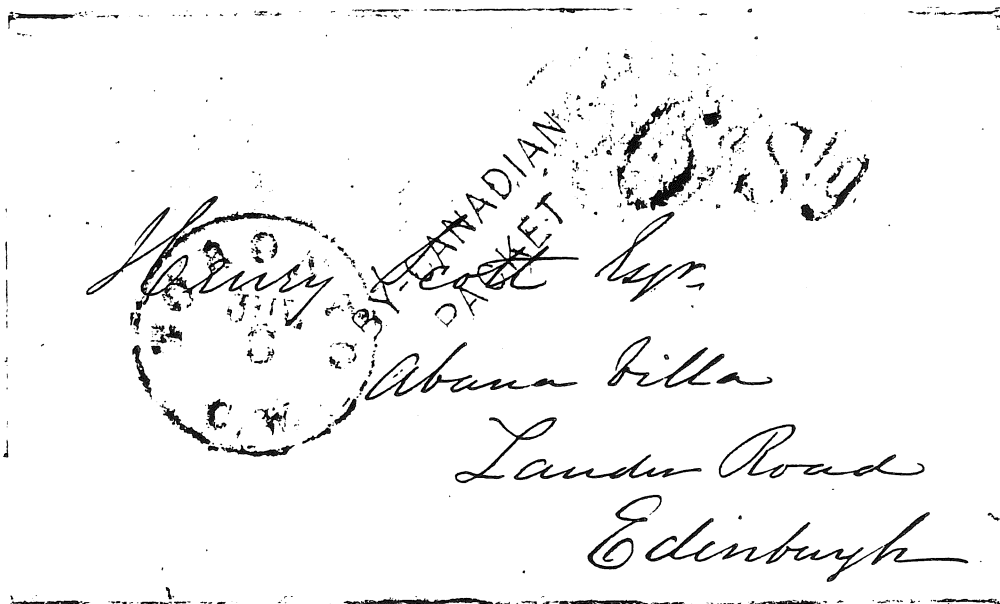 BY CANADIAN
PACKET
TORONTO
JUL
8
C.W.
Henry Scott Esqr.
Abana Villa
Lauder Road
Edinburgh